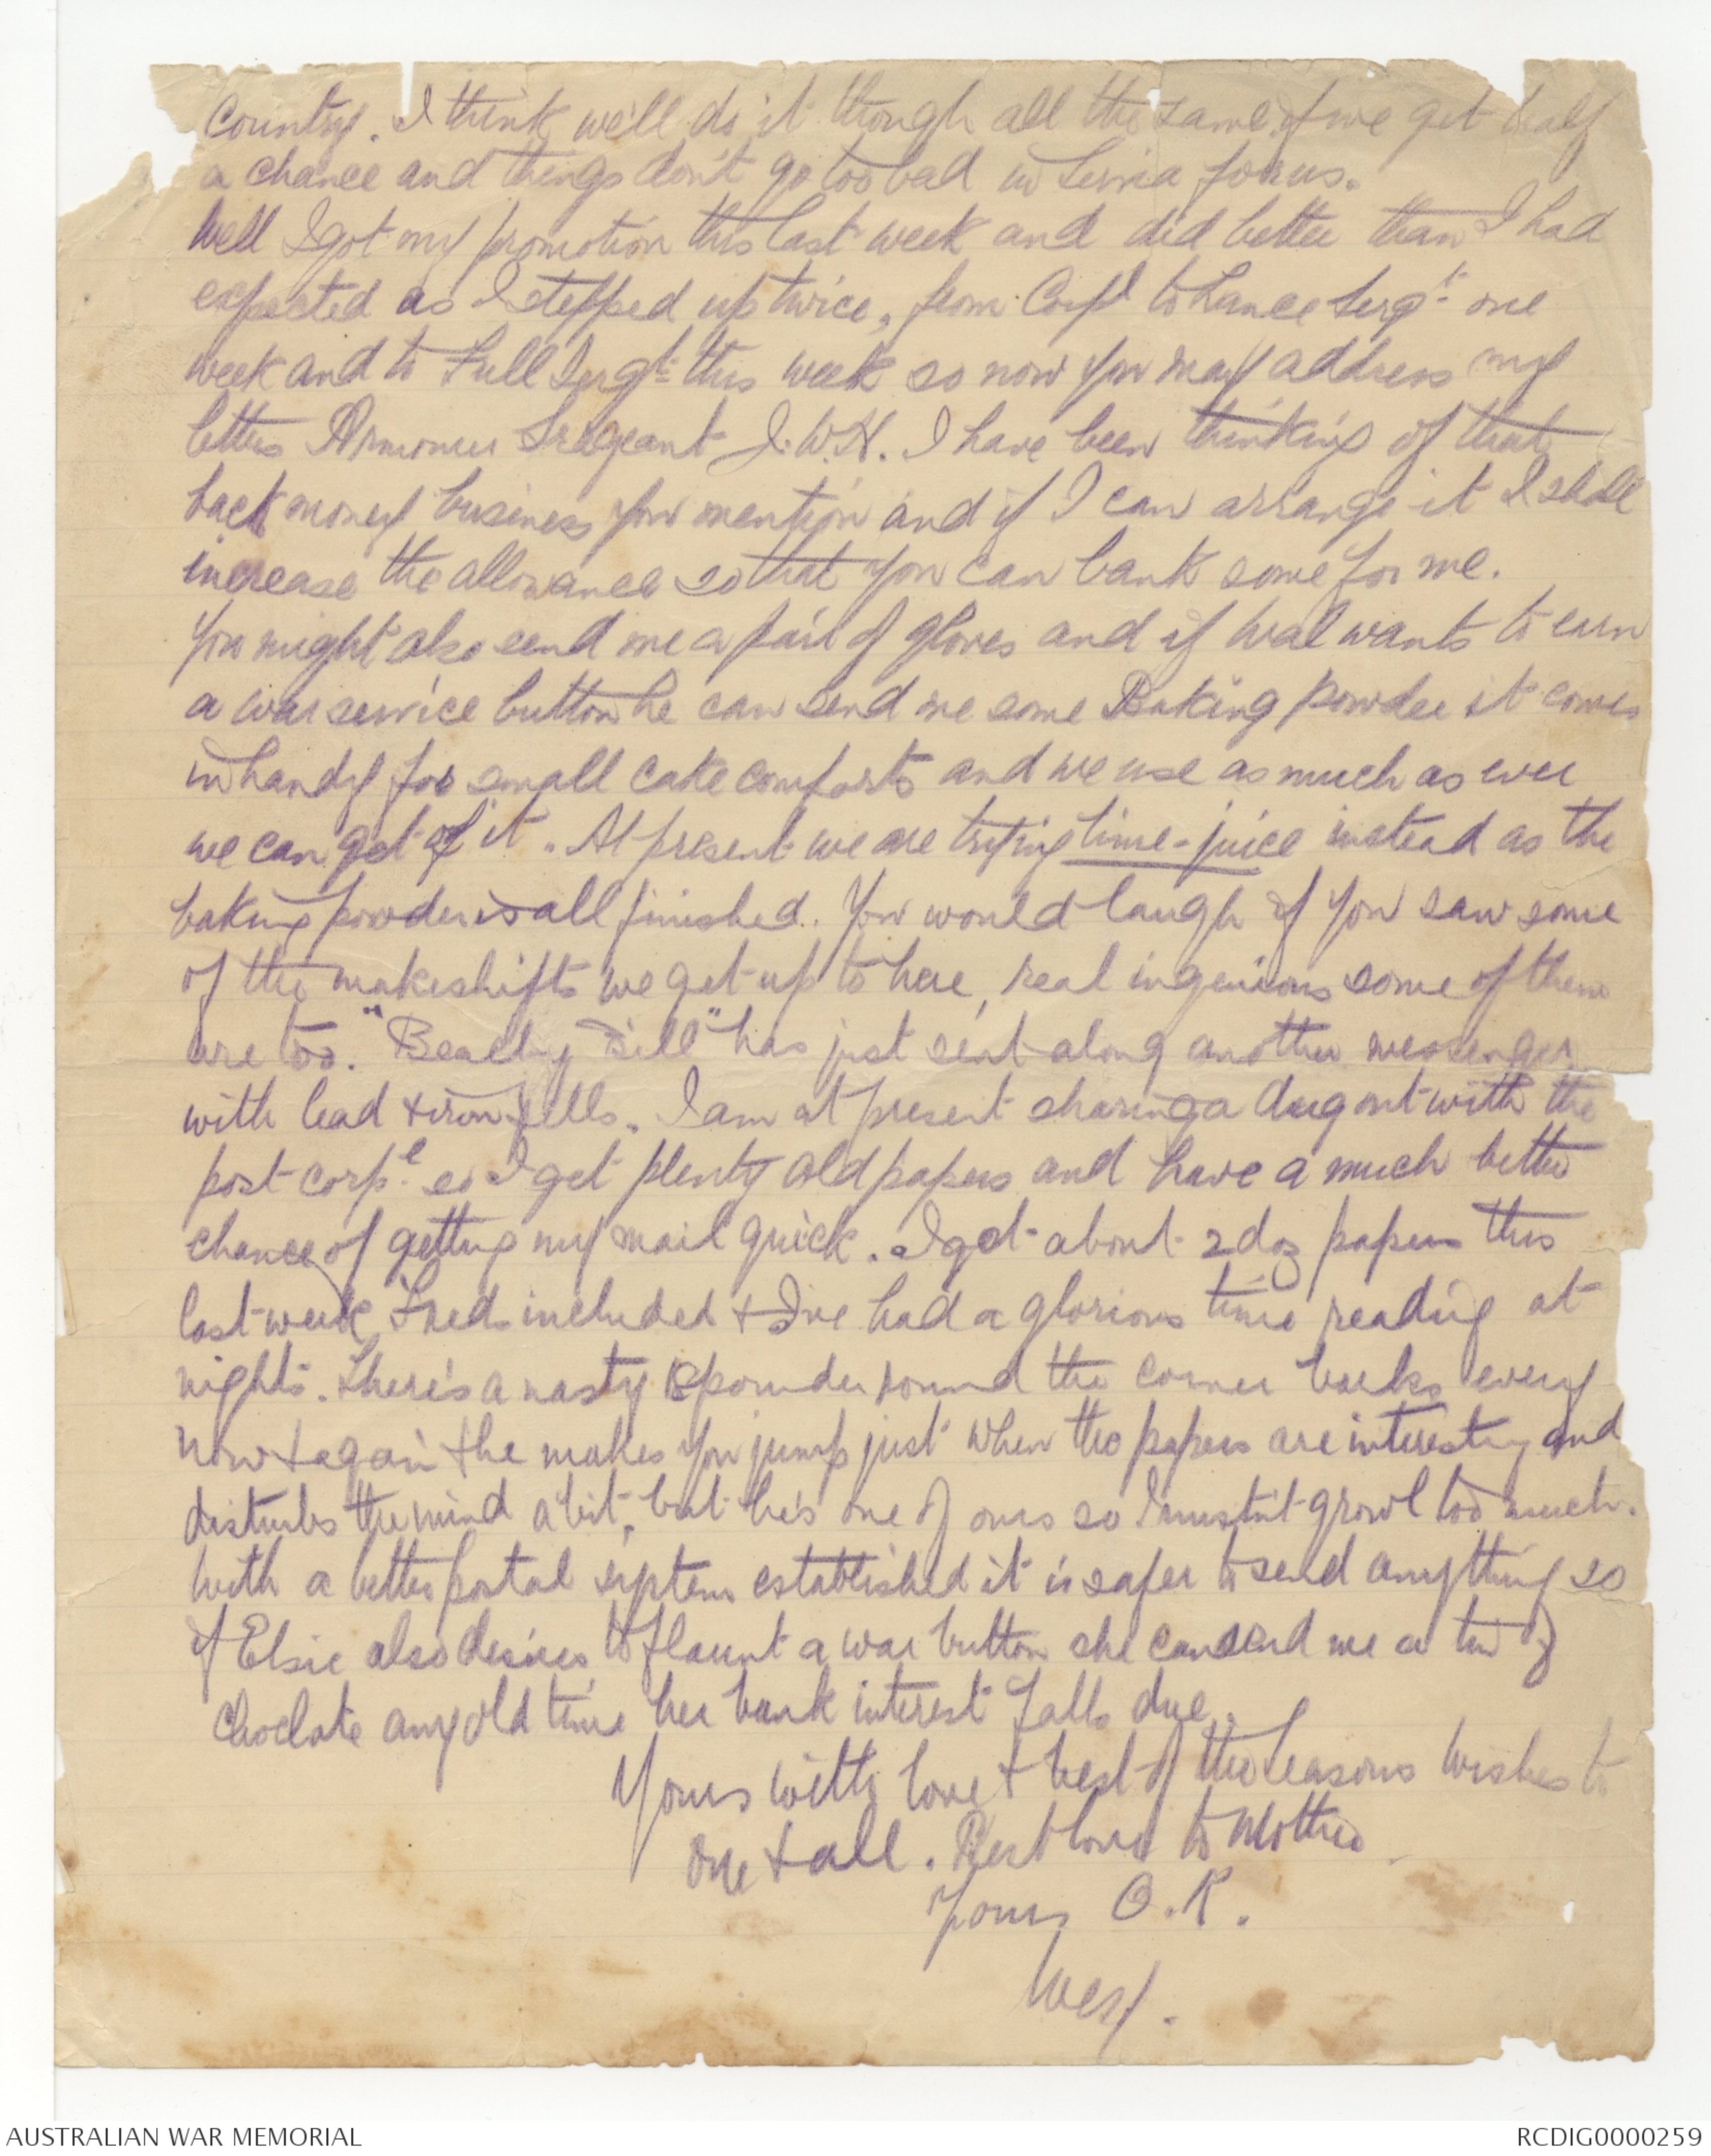 country. I think we'll do it though all the same if we get half
a chance and things don't go too bad in Servia for us.
Well I got my promotion this last week and did better than I had
expected as I stepped up twice, from Corpl to Lance Sergt one
week and to Full Sergt this week so now you may address my
letters Armourer Sergeant J.W.H. I have been thinking of that
back money business you mention and if I can arrange it I shall
increase the allowance so that you can bank some for me.
You might also send me a pair of gloves and if Hal wants to earn
a war service button he can send me some Baking powder it comes
in handy for small cake comforts and we use as much as ever
we can get of it. At present we are trying lime-juice instead as the
baking powder is all finished. You would laugh if you saw some
of the makeshifts we get up to here, real ingenious some of them
are too. "Beachy Bill" has just sent along another messenger
with lead & iron pills. I am at present sharing a dug out with the
post corpl so I get plenty old papers and have a much better
chance of getting my mail quick. I got about 2 doz papers this
last week, Fred's included & I've had a glorious time reading at
nights. There's a nasty 18 pounder round the corner barks every
now & again & he makes you jump just when the papers are interesting and
disturbs the mind a bit, but he's one of ours so I mustn't growl too much.
With a better postal system established it is safer to send anything so
if Elsie also desires to flaunt a war button she can send me a tin of
choclate any old time her bank interest falls due.
Yours with love & best of the Seasons wishes to
one & all. Best love to Mother
Yours O.K.
Wesy.
AUSTRALIAN WAR MEMORIAL
RCDIG0000259